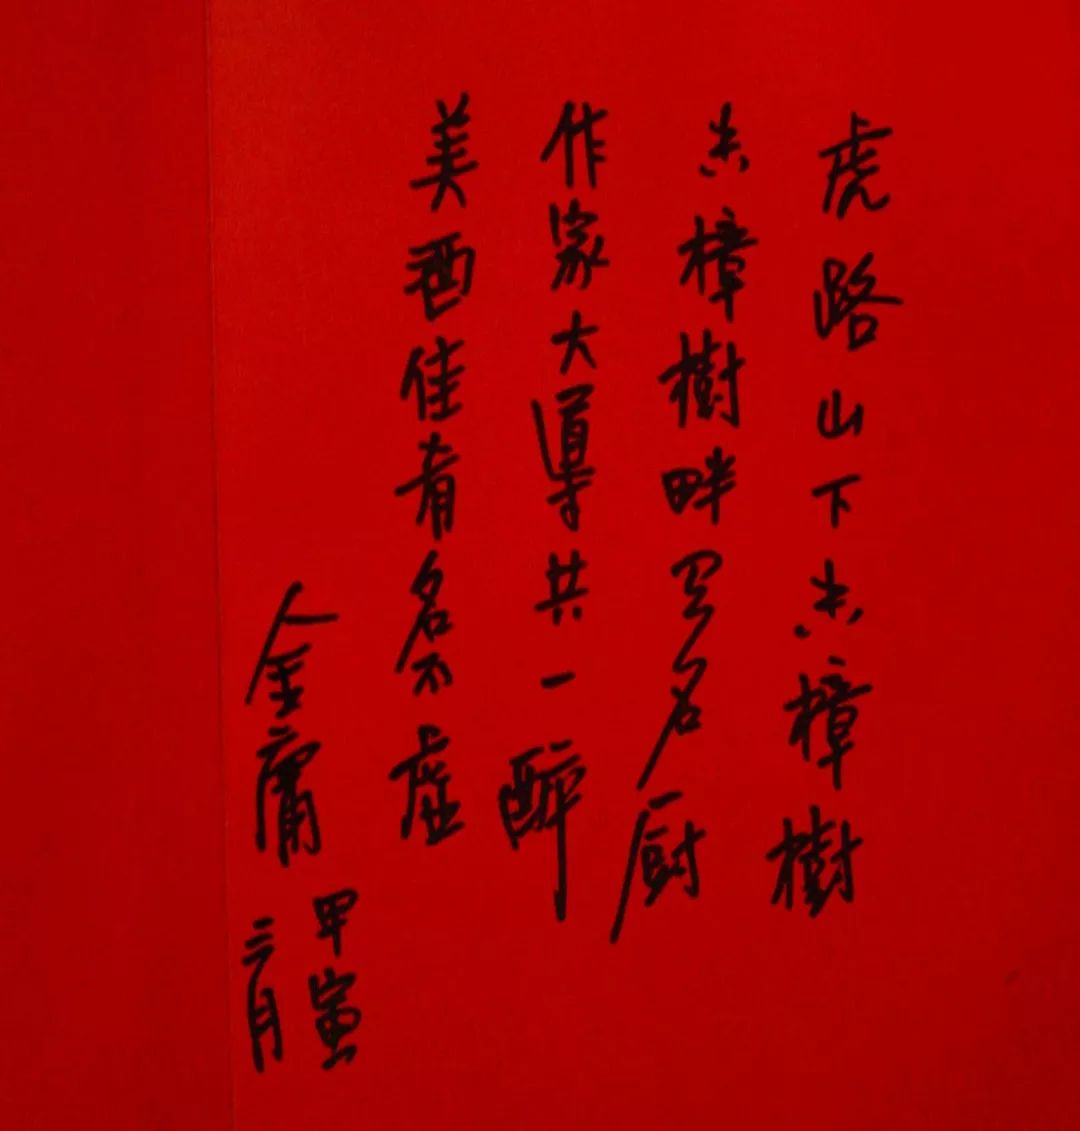 虎路山下香樟樹
香樟樹畔罗名厨
作家大導共一醉
美酒佳肴名不虚
金庸
甲寅
三月